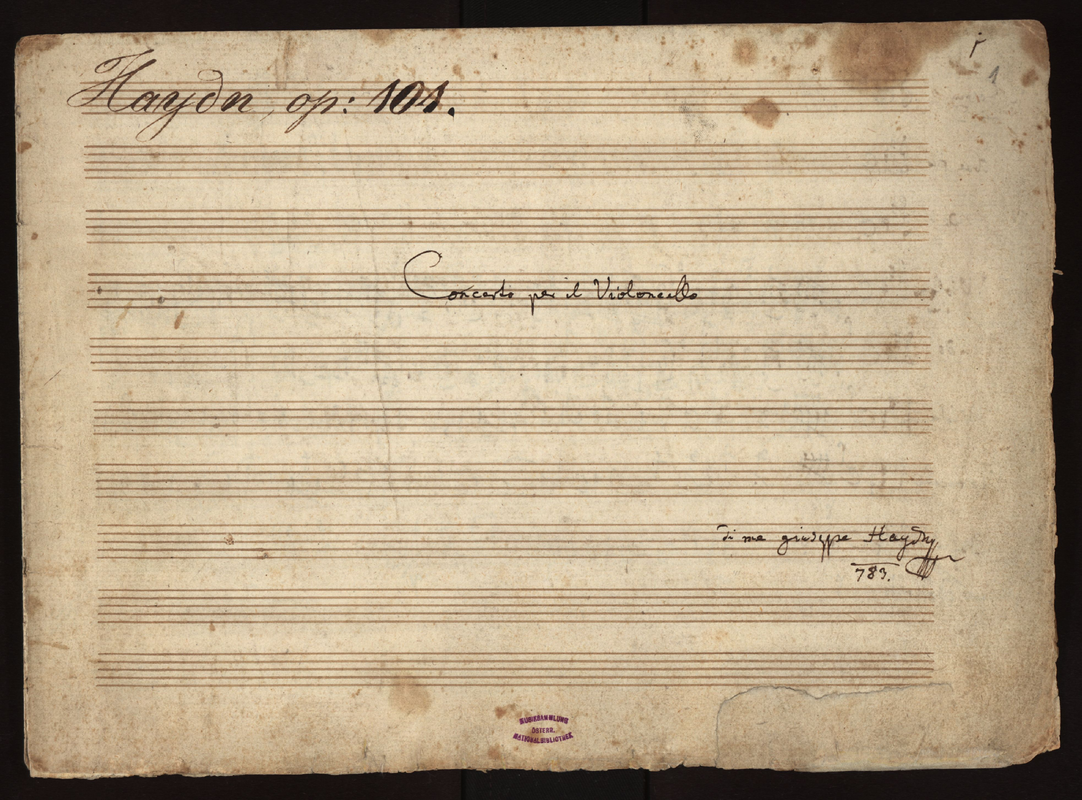 1
Haydn, op: 101.
Concerto per il Violoncello
di me giuseppe Haydn
783.
MUSIKSAMMLUNG
ÖSTERR.
NATIONALBIBLIOTHEK